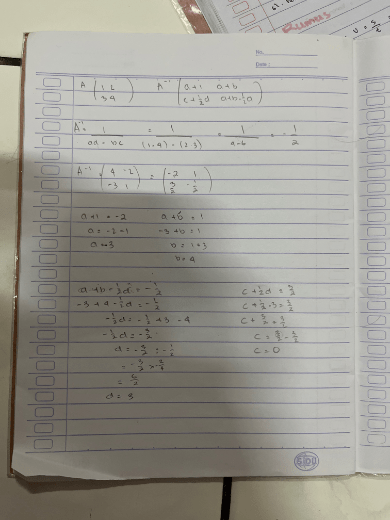 Rumus
No.
Date.
A (1 2 / 3 4) A⁻¹ (a+1 a+b / c+½d a+b-½d)
A⁻¹ = 1/(ad-bc) = 1/((1·4)-(2·3)) = 1/(4-6) = -1/2
A⁻¹ (4 -2 / -3 1) = (-2 1 / 3/2 -1/2)
a+1 = -2 a+b = 1
a = -2-1 -3+b = 1
a = -3 b = 1+3
b = 4
a+b-½d = -½ c+½d = 3/2
-3+4-½d = -½ c+½·3 = 3/2
-½d = -½+3-4 c+3/2 = 3/2
-½d = -3/2 c = 3/2-3/2
d = -3/2 : -1/2 c = 0
d = 3
SIDU